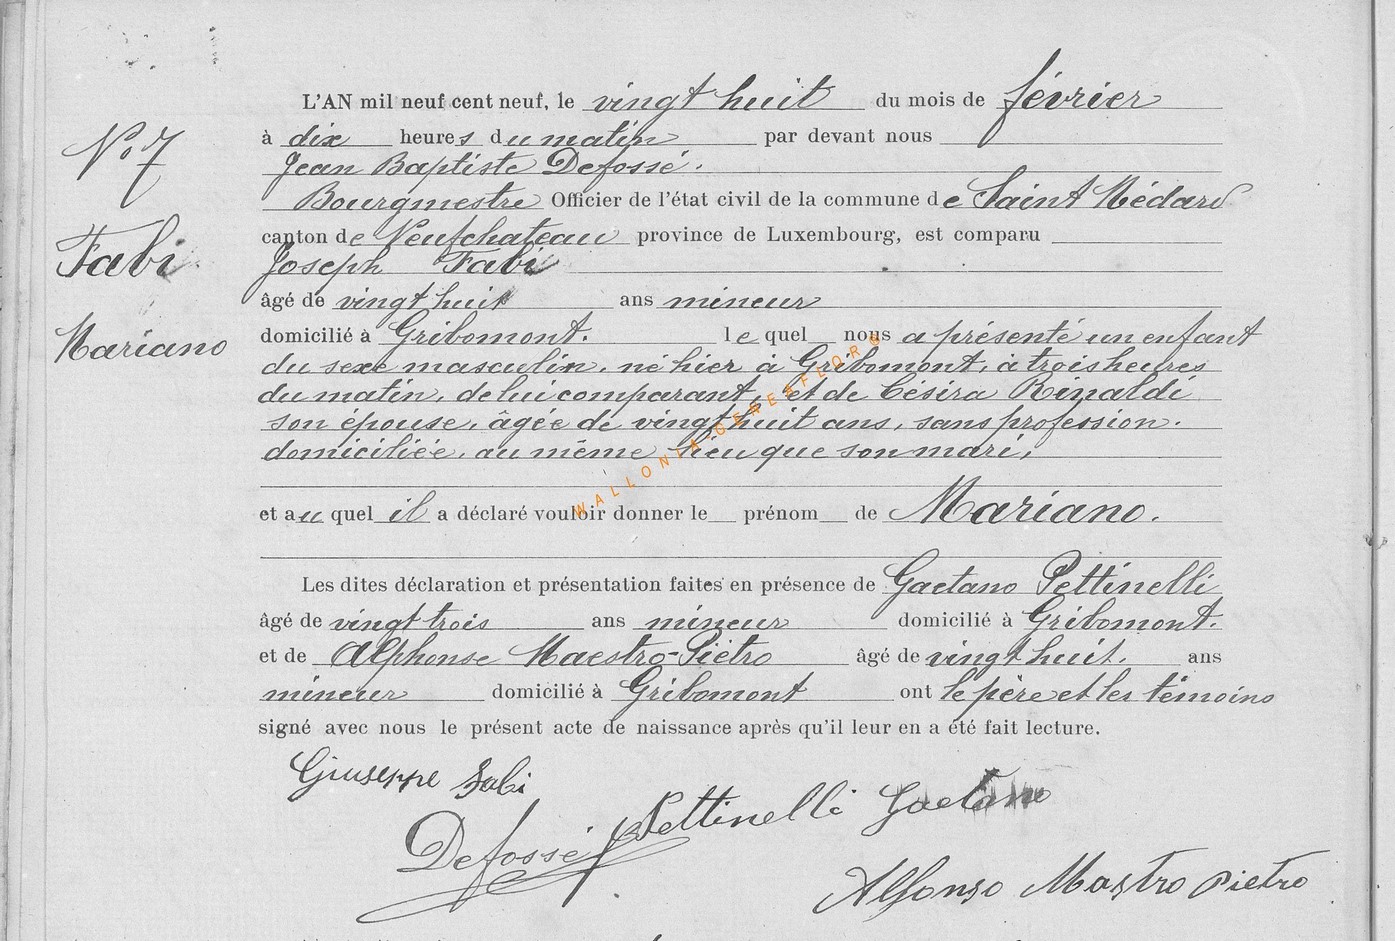 L'AN mil neuf cent neuf, le vingt huit du mois de février
N° 7
à dix heures du matin par devant nous
Jean Baptiste Defossé.
Bourgmestre Officier de l'état civil de la commune de Saint Médard
canton de Neufchateau province de Luxembourg, est comparu
Fabi
Joseph Fabi
âgé de vingt huit ans mineur
Mariano
domicilié à Gribomont. le quel nous a présenté un enfant
du sexe masculin, né hier à Gribomont, à trois heures
du matin, de lui comparant, et de Césira Rinaldi
son épouse, âgée de vingt huit ans, sans profession.
domiciliée, au même lieu que son mari,
WALLONIA-GENEAFLOR©
et au quel il a déclaré vouloir donner le prénom de Mariano.
Les dites déclaration et présentation faites en présence de Gaetano Pettinelli
âgé de vingt trois ans mineur domicilié à Gribomont.
et de Alphonse Maestro-Piètro âgé de vingt huit. ans
mineur domicilié à Gribomont ont le père et les témoins
signé avec nous le présent acte de naissance après qu'il leur en a été fait lecture.
Giuseppe Fabi
Pettinelli Gaetano
Defossé
Alfonso Mastro Pietro